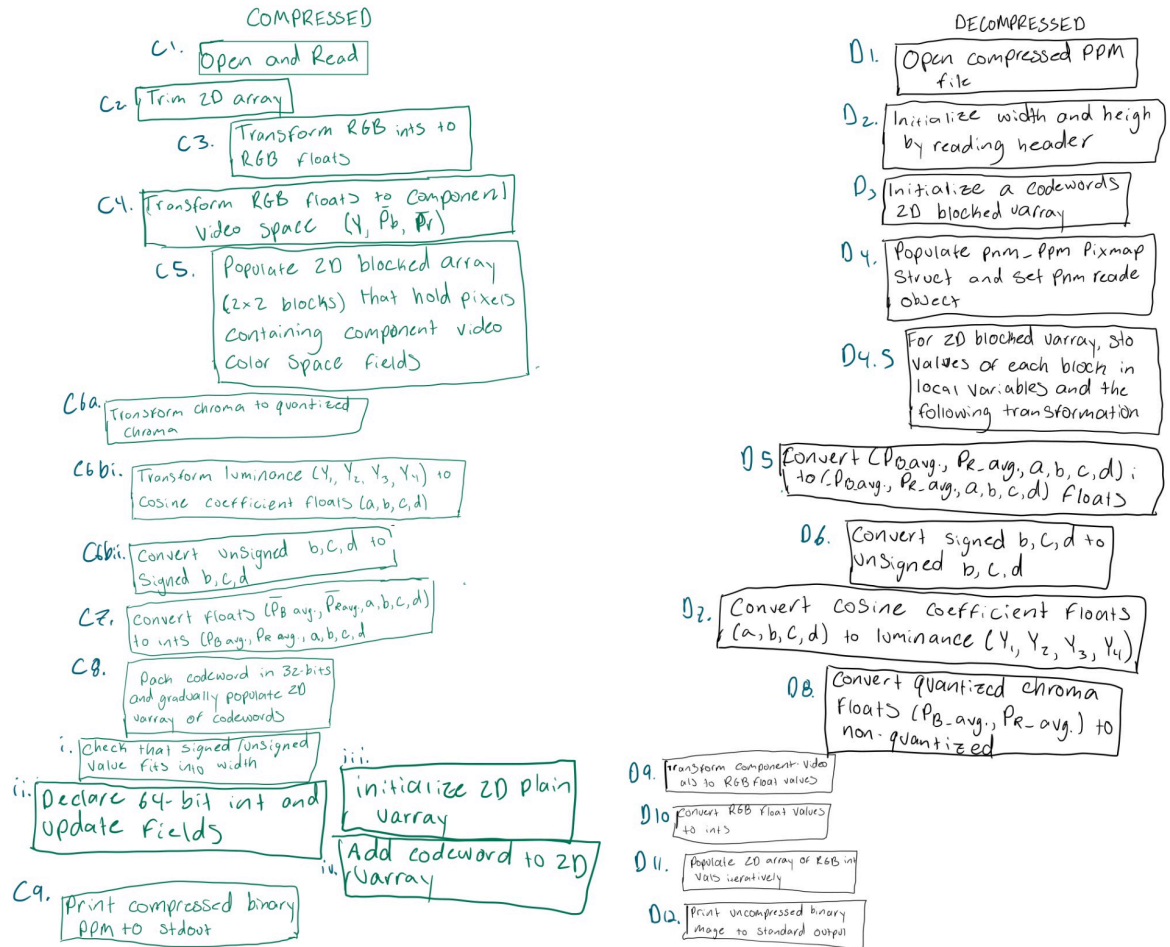 COMPRESSED
C1.
Open and Read
C2
Trim 2D array
C3.
Transform RGB ints to
RGB floats
C4.
Transform RGB floats to component
video space (Y, P̄b, P̄r)
C5.
Populate 2D blocked array
(2x2 blocks) that hold pixels
containing component video
color space fields
C6a.
Transform chroma to quantized
chroma
C6bi.
Transform luminance (Y1, Y2, Y3, Y4) to
cosine coefficient floats (a,b,c,d)
C6bii.
Convert unsigned b,c,d to
signed b,c,d
C7.
Convert floats (P̄B avg., P̄R avg., a,b,c,d)
to ints (PB avg., PR avg., a,b,c,d
C8.
Pack codeword in 32-bits
and gradually populate 2D
varray of codewords
i.
Check that signed/unsigned
value fits into width
ii.
Declare 64-bit int and
update fields
iii.
initialize 2D plain
varray
iv.
Add codeword to 2D
varray
C9.
Print compressed binary
PPM to stdout
DECOMPRESSED
D1.
Open compressed PPM
file
D2.
Initialize width and heigh
by reading header
D3
Initialize a codewords
2D blocked varray
D4.
Populate pnm_ppm Pixmap
struct and set pnm reade
object
D4.5
For 2D blocked varray, sto
values of each block in
local variables and the
following transformation
D5
Convert (PB avg., PR_avg., a,b,c,d) i
to (PB avg., PR_avg., a,b,c,d) floats
D6.
Convert signed b,c,d to
unsigned b,c,d
D7.
Convert cosine coefficient floats
(a,b,c,d) to luminance (Y1, Y2, Y3, Y4)
D8.
Convert quantized chroma
floats (PB_avg., PR_avg.) to
non-quantized
D9.
Transform component video
als to RGB float values
D10
Convert RGB float values
to ints
D11.
Populate 2D array of RGB int
vals iteratively
D12.
Print uncompressed binary
mage to standard output